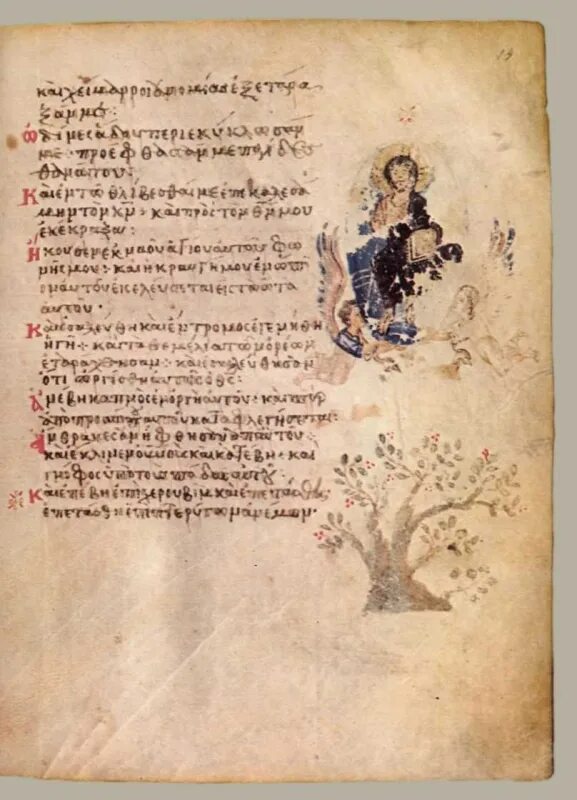 καὶ χείμαρροι ἀνομίας ἐξετάρα
ξάν με:
ὠδῖνες ἅδου περιεκύκλωσάν
με· προέφθασάν με παγίδες
θανάτου:
Καὶ ἐν τῶ θλίβεσθαί με ἐπεκαλεσά
μην τὸν κν· καὶ πρὸς τὸν θν μου
ἐκέκραξα:
Ἤκουσεν ἐκ ναοῦ ἁγίου αὐτοῦ φω
νῆς μου· καὶ ἡ κραυγή μου ἐνώπι
ον αὐτοῦ εἰσελεύσεται εἰς τὰ ὦτα
αὐτοῦ·
Καὶ ἐσαλεύθη καὶ ἔντρομος ἐγενήθη
ἡ γῆ· καὶ τὰ θεμέλια τῶν ὀρέων
ἐταράχθησαν· καὶ ἐσαλεύθησαν
ὅτι ὠργίσθη αὐτοῖς ὁ θς:
Ἀνέβη καπνὸς ἐν ὀργῆ αὐτοῦ· καὶ πῦρ
ἀπὸ προσώπου αὐτοῦ καταφλεγήσεται:
Ἄνθρακες ἀνήφθησαν ἀπ' αὐτοῦ·
καὶ ἔκλινεν οὐνους καὶ κατέβη· καὶ
γνόφος ὑπὸ τοὺς πόδας αὐτοῦ:
Καὶ ἐπέβη ἐπὶ χερουβὶμ καὶ ἐπετάσθη
ἐπετάσθη ἐπὶ πτερύγων ἀνέμων·